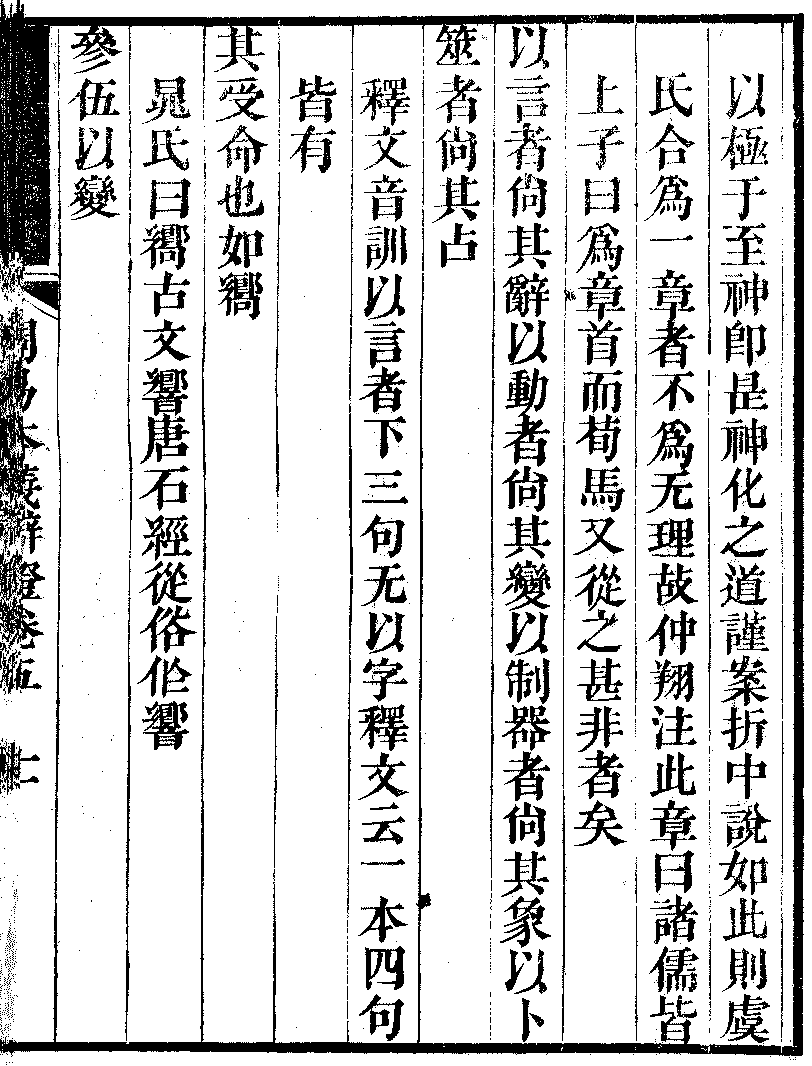 以極于至神卽是神化之道謹案折中說如此則虞
氏合爲一章者不爲无理故仲翔注此章曰諸儒皆
上子曰爲章首而荀馬又從之甚非者矣
以言者尙其辭以動者尙其變以制器者尙其象以卜
筮者尙其占
釋文音訓以言者下三句无以字釋文云一本四句
皆有
其受命也如嚮
晁氏曰嚮古文響唐石經從俗作響
參伍以變
周易本義辨證卷五